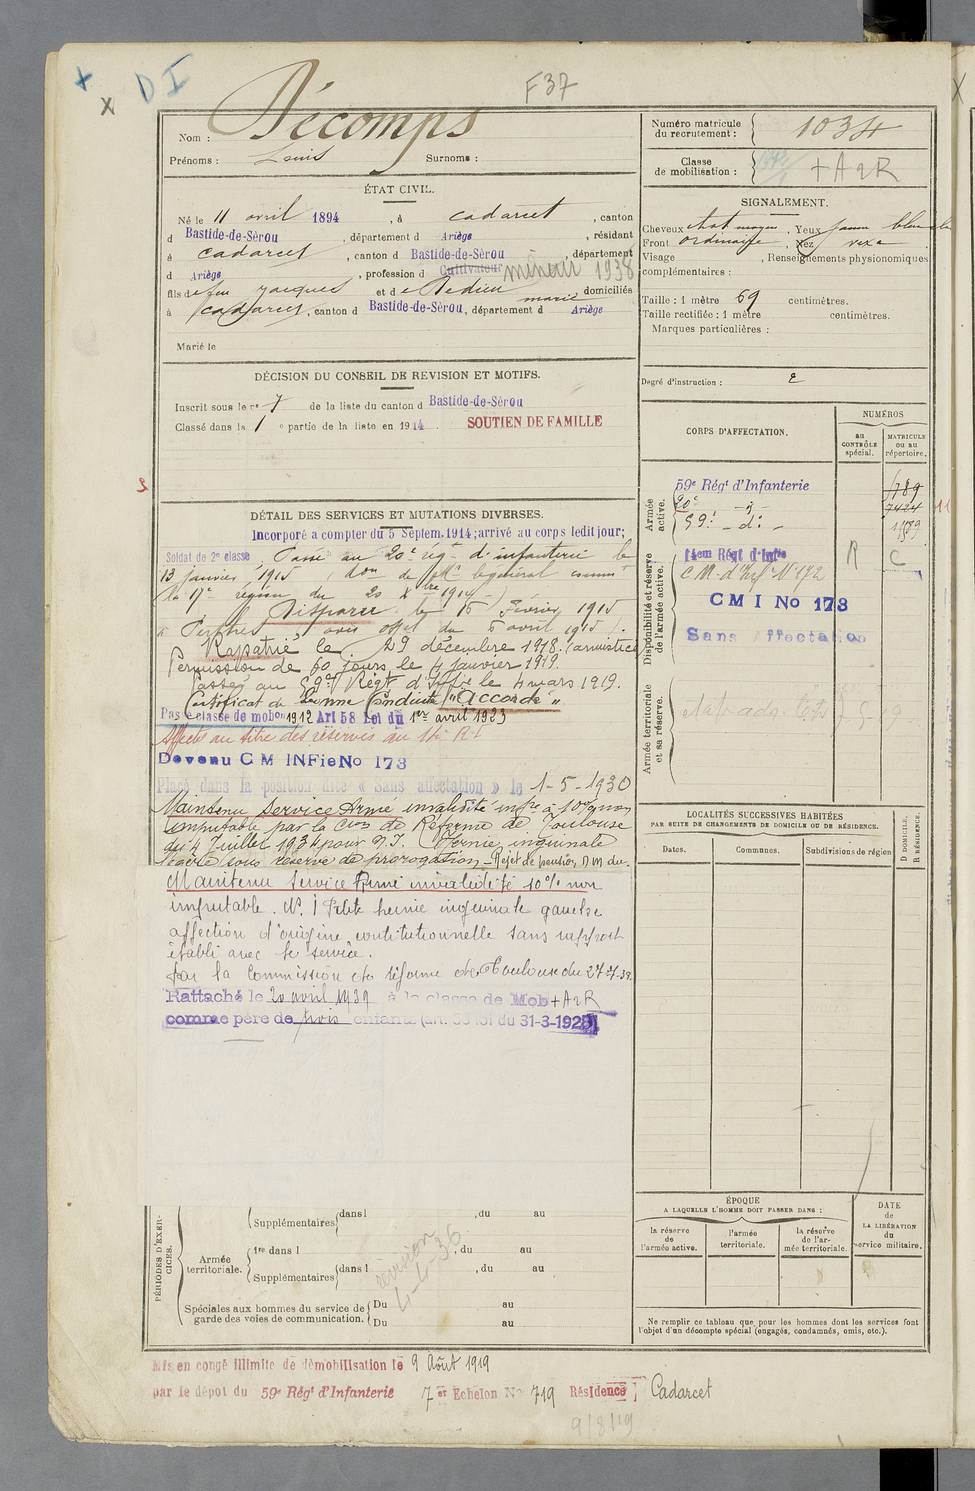 D I
F37
Nom : Décomps
Prénoms : Louis Surnoms :
Numéro matricule du recrutement : 1034
Classe de mobilisation : + A 2 R
ÉTAT CIVIL.
Né le 11 avril 1894, à Cadarcet, canton
d Bastide-de-Sérou, département d Ariège, résidant
à Cadarcet, canton d Bastide-de-Sérou, département
d Ariège, profession d Cultivateur mineur 1938
fils de feu Jacques et de Dedieu Marie domiciliés
à Cadarcet, canton d Bastide-de-Sérou, département d Ariège
Marié le
SIGNALEMENT.
Cheveux chat moyen, Yeux
Front ordinaire, Nez vexe
Visage , Renseignements physionomiques
complémentaires :
Taille : 1 mètre 69 centimètres.
Taille rectifiée : 1 mètre centimètres.
Marques particulières :
Degré d'instruction : 2
DÉCISION DU CONSEIL DE REVISION ET MOTIFS.
Inscrit sous le n° 7 de la liste du canton d Bastide-de-Sérou
Classé dans la 1 e partie de la liste en 1914. SOUTIEN DE FAMILLE
DÉTAIL DES SERVICES ET MUTATIONS DIVERSES.
Incorporé a compter du 5 Septem. 1914; arrivé au corps ledit jour;
Soldat de 2e classe Passé au 20e rég. d'infanterie le
13 janvier 1915
la 17e région du 20 Xbre 1914
Disparu le 16 Février 1915
à Perthes avis offel du 6 avril 1915
Rapatrié le 29 décembre 1918. (armistice)
Permission de 60 jours le 4 janvier 1919.
Passé au 59e Régt d'Inf. le 4 mars 1919.
Certificat de Bonne Conduite "Accordé"
Passé classe de mobon 1912 Art 58 Loi du 1er avril 1923
Affecté au titre des réserves au 14e RI
Devenu CM INFie No 173
Placé dans la position dite « Sans affectation » le 1-5-1930
Maintenu Service Armé invalidité infre à 10% non
imputable par la Cion de Réforme de Toulouse
du 4 Juillet 1934 pour N.I. Hernie inguinale
sous réserve de prorogation - Rejet de pension D.M. du
Maintenu Service Armé invalidité 10% non
imputable. N. I Petite hernie inguinale gauche
affection d'origine constitutionnelle sans rapport
établi avec le service.
par la Commission de réforme de Toulouse du 27-7-38
Rattaché le 20 avril 1939 à la classe de Mob + A 2 R
comme père de trois enfants (art. 58 loi du 31-3-1928)
CORPS D'AFFECTATION.
NUMÉROS
au CONTRÔLE spécial.
MATRICULE ou au répertoire.
Armée active.
59e Régt d'Infanterie 1789
20e - d - 7424
59e - d: - 1789
Disponibilité et réserve de l'armée active.
14em Régt d'Infie R C
C M. d'Inf. N° 172
CMI No 173
Sans Affectation
Armée territoriale et sa réserve.
LOCALITÉS SUCCESSIVES HABITÉES
PAR SUITE DE CHANGEMENTS DE DOMICILE OU DE RÉSIDENCE.
Dates.
Communes.
Subdivisions de région
D DOMICILE. R RÉSIDENCE.
PÉRIODES D'EXERCICES.
Supplémentaires dans l , du au
Armée territoriale.
1re dans l , du au
Supplémentaires dans l , du au
Spéciales aux hommes du service de garde des voies de communication.
Du au
Du au
revision 4-4-36
ÉPOQUE
A LAQUELLE L'HOMME DOIT PASSER DANS :
la réserve de l'armée active.
l'armée territoriale.
la réserve de l'armée territoriale.
DATE de LA LIBÉRATION du service militaire.
Ne remplir ce tableau que pour les hommes dont les services font
l'objet d'un décompte spécial (engagés, condamnés, omis, etc.).
Mis en congé illimité de démobilisation le 9 Août 1919
par le dépôt du 59e Régt d'Infanterie 7 er Echelon No 719 Résidence Cadarcet
9/8/19